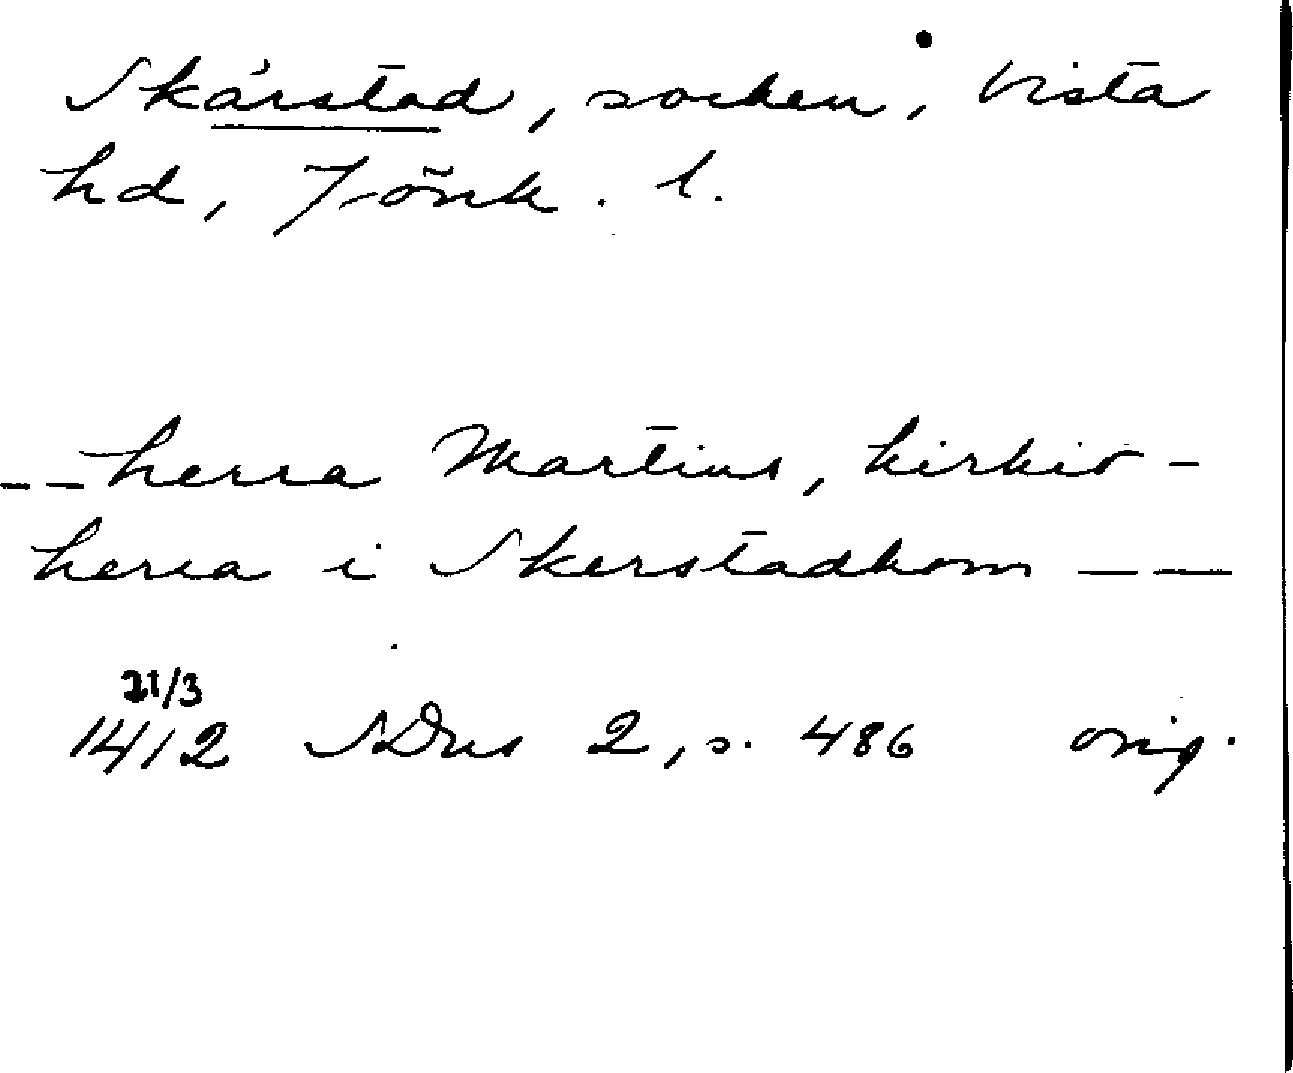 Skärstad, socken, Vista
hd, Jönk. l.
-- herra Martins, kirkio-
herra i Skerstadhom --
21/3
1412 SDns 2, s. 486 orig.